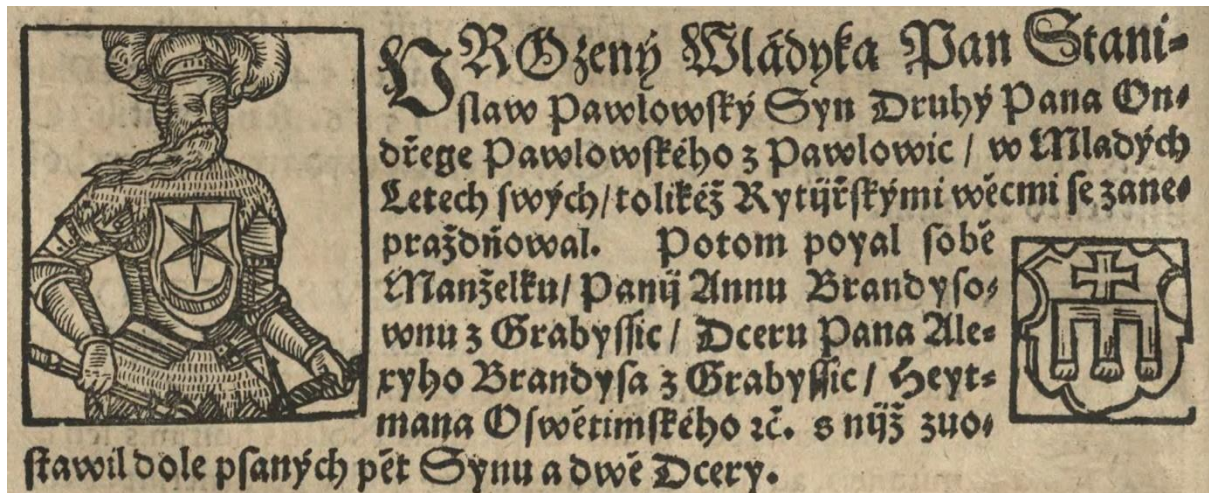 VROzený Wládyka Pan Stani-
slaw Pawlowský Syn Druhý Pana On-
dřege Pawlowského z Pawlowic / w Mladých
Letech swých / tolikéž Rytijřskými wěcmi se záne-
prazdňowal. Potom poyal sobě
Manželku / Panij Annu Brandyso-
wnu z Grabyssic / Dceru Pana Ale-
xyho Brandysa z Grabyssic / Heyt-
mana Oswětimského ꝛč. s nijž zuo-
stawil dole psaných pět Synu a dwě Dcery.